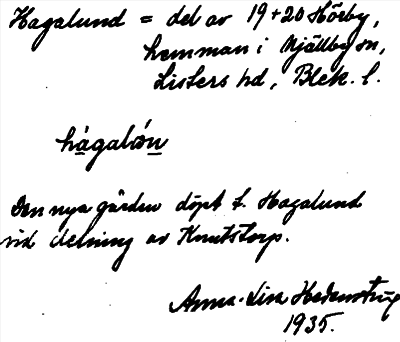 Hagalund = del av 19+20 Hörby,
hemman i Mjällby sn,
Listers hd, Blek. l.
hágalón
Den nya gården döpt t. Hagalund
vid delning av Knutstorp.
Anna-Lisa
1935.